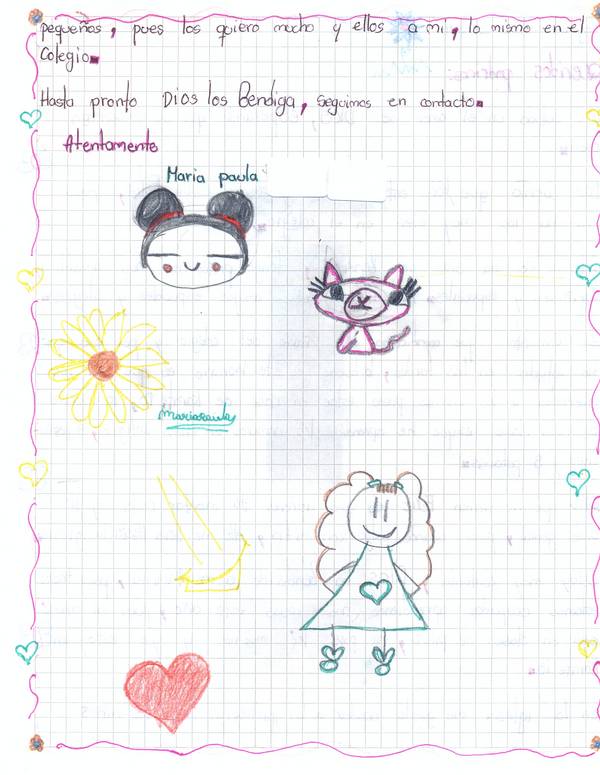 pequeños, pues los quiero mucho y ellos a mi, lo mismo en el
Colegio.
Hasta pronto Dios los Bendiga, seguimos en contacto.
Atentamente
Maria paula